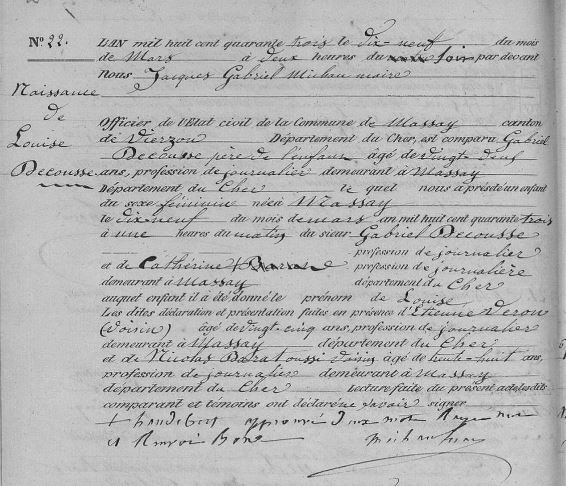 N° 22.
Naissance
de
Louise
Decousse
L'AN mil huit cent quarante trois le dix-neuf du mois
de Mars à deux heures du soir par devant
Nous Jacques Gabriel Michau maire
Officier de l'Etat civil de la Commune de Massay canton
de Vierzon Département du Cher, est comparu Gabriel
Decousse père de l'enfant âgé de vingt-neuf
ans, profession de journalier demeurant à Massay
Département du Cher le quel nous a présenté un enfant
du sexe féminin né à Massay
le dix-neuf du mois de mars an mil huit cent quarante trois
à une heures du matin du sieur Gabriel Decousse
profession de journalier
et de Cathérine + profession de journalière
demeurant à Massay département du Cher
auquel enfant il a été donné le prénom de Louise
Les dites déclaration et présentation faites en présence d'Etienne
(voisin) âgé de vingt-cinq ans, profession de journalier
demeurant à Massay département du Cher
et de Nicolas voisin âgé de trente-huit ans,
profession de journalier demeurant à Massay
département du Cher Lecture faite du présent acte les dits
comparant et témoins ont déclaré ne savoir signer
+ approuvé
et Renvoi Bon